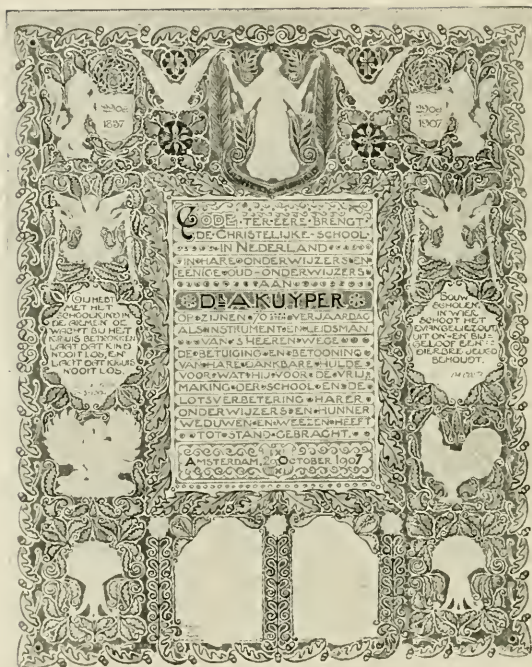 29 Oct
1837
29 Oct
1907
GODE·TER·EERE·BRENGT
DE·CHRISTELIJKE·SCHOOL
IN NEDERLAND
IN·HARE·ONDERWIJZERS·EN
EENIGE·OUD-ONDERWIJZERS
AAN
Dr A KUYPER
OP·ZIJNEN·70STEN·VERJAARDAG
ALS·INSTRUMENT·EN·LEIDSMAN
VAN·'S HEEREN·WEGE
DE·BETUIGING·EN·BETOONING
VAN·HARE·DANKBARE·HULDE
VOOR·WAT·HIJ·VOOR·DE·VRIJ-
MAKING·DER·SCHOOL·EN·DE
LOTSVERBETERING·HARER
ONDERWIJZERS·EN·HUNNER
WEDUWEN·EN·WEEZEN·HEEFT
TOT·STAND·GEBRACHT.
AMSTERDAM, 29 OCTOBER 1907
GIJ HEBT
MET HET
SCHOOLKIND IN
DE ARMEN DE
WACHT BIJ HET
KRUIS BETROKKEN
LAAT DAT KIND
NOOIT LOS, EN
LAAT DAT KRUIS
NOOIT LOS.
BOUW
SCHOLEN,
IN WIER
SCHOOT HET
EVANGELIEZOUT
UIT ON- EN BIJ-
GELOOF EEN
DIERBRE JEUGD
BEHOUDT.